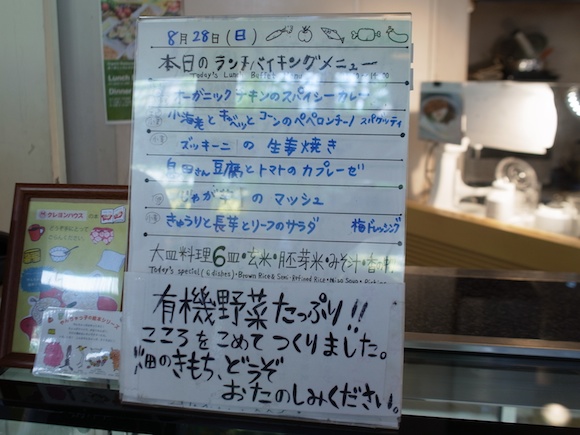 8月28日(日)
本日のランチバイキングメニュー
Today's Lunch Buffet
オーガニックチキンのスパイシーカレー
小海老とキャベツとコーンのペペロンチーノ スパゲッティ
ズッキーニの生姜焼き
豆腐とトマトのカプレーゼ
じゃが芋のマッシュ
きゅうりと長芋とリーフのサラダ 梅ドレッシング
大皿料理6皿・玄米・胚芽米・みそ汁・香
Today's special (6 dishes)・Brown Rice & Semi-Refined Rice・Miso Soup・
有機野菜たっぷり!!
こころをこめてつくりました。
畑のきもち、どうぞ
おたのしみください。
クレヨンハウス
Lunch
Dinner